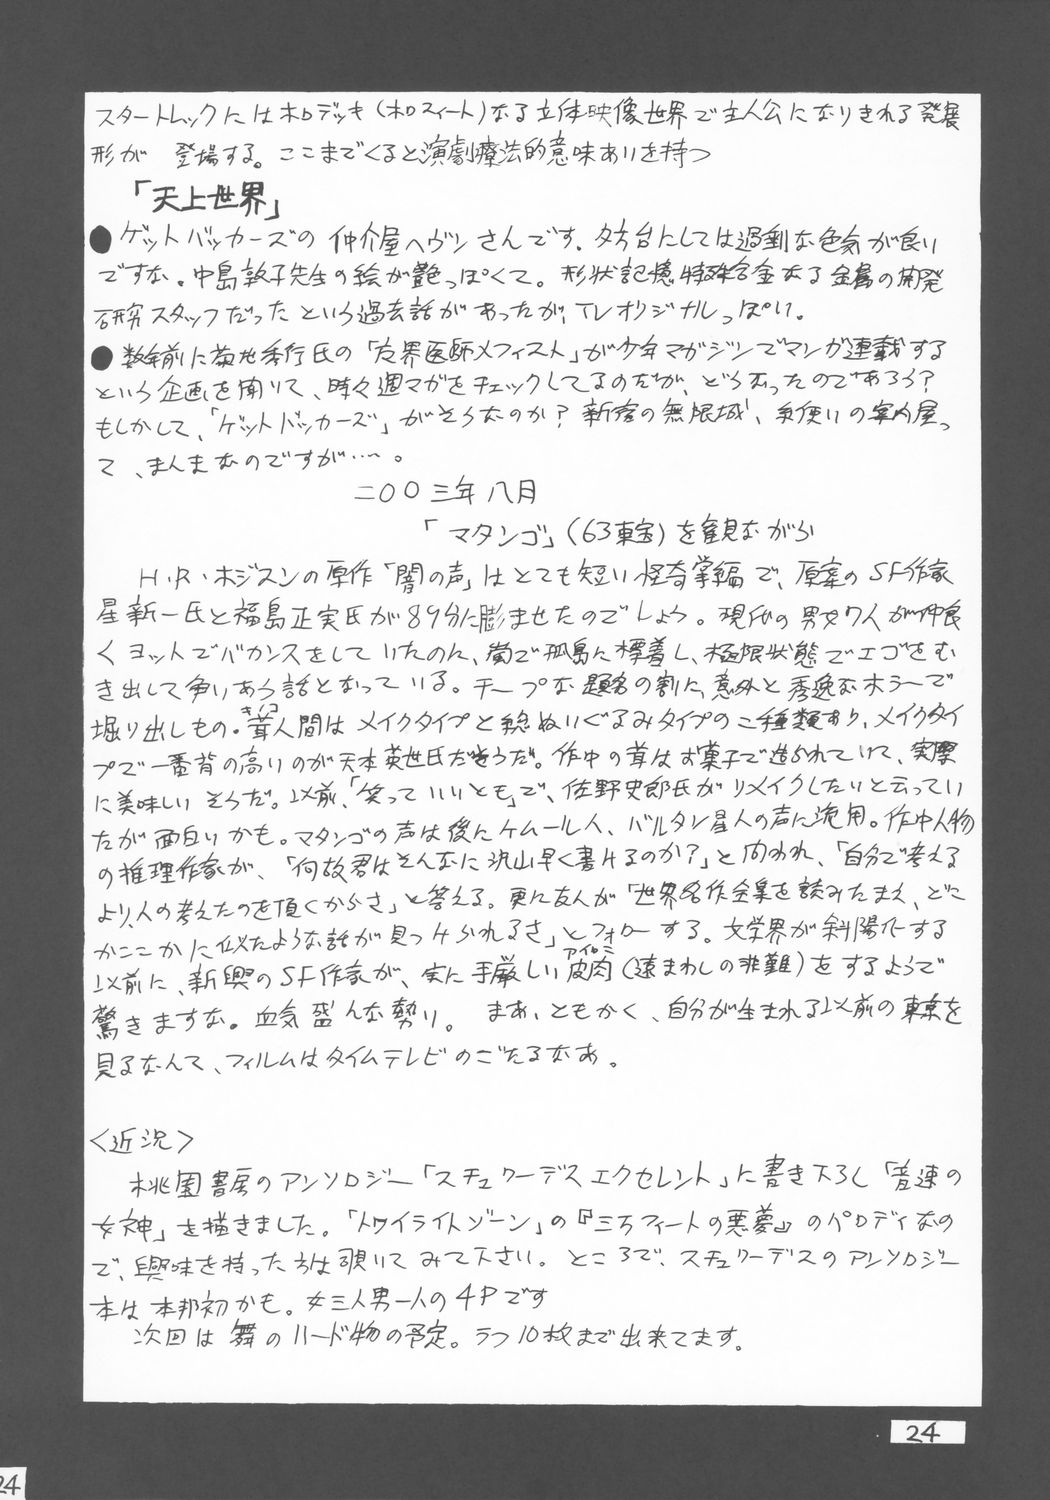 スタートレックにはホロデッキ(ホロスィート)なる立体映像世界で主人公になりきれる発展
形が 登場する。ここまでくると演劇療法的意味あいを持つ
「天上世界」
●ゲットバッカーズの仲介屋ヘヴンさんです。夕方台にしては過剰な色気が良い
ですな。中島敦子先生の絵が艶っぽくて。形状記憶特殊合金なる金属の開発
研究スタッフだったという過去話があったが、TVオリジナルっぽい。
●数年前に菊地秀行氏の「魔界医師メフィスト」が少年マガジンでマンガ連載する
という企画を聞いて、時々週マガをチェックしてるのだが、どうなったのであろう?
もしかして、「ゲットバッカーズ」がそうなのか?新宿の無限城、糸使いの案内屋っ
て、まんまなのですが…。
二〇〇三年八月
「マタンゴ」(63東宝)を観ながら
H・R・ホジスンの原作「闇の声」はとても短い怪奇掌編で、原案のSF作家
星新一氏と福島正実氏が89分に膨ませたのでしょう。現代の男女7人が仲良
くヨットでバカンスをしていたのに、嵐で孤島に漂着し、極限状態でエゴをむ
き出して争いあう話となっている。チープな題名の割に、意外と秀逸なホラーで
堀り出しもの。茸人間はメイクタイプと総ぬいぐるみタイプの二種類あり、メイクタイ
プで一番背の高いのが天本英世氏だそうだ。作中の茸はお菓子で造られていて、実際
に美味しいそうだ。以前、「笑っていいとも」で、佐野史郎氏がリメイクしたいと云ってい
たが面白いかも。マタンゴの声は後にケムール人、バルタン星人の声に流用。作中人物
の推理作家が、「何故君はそんなに沢山早く書けるのか?」と問われ、「自分で考える
より、人の考えたのを頂くからさ」と答える。更に友人が「世界名作全集を読みたまえ、どこ
かここかに似たような話が見つけられるさ」とフォローする。文学界が斜陽化する
以前に、新興のSF作家が、実に手厳しい皮肉(遠まわしの非難)をするようで
驚きますな。血気盛んな勢い。 まあ、ともかく、自分が生まれる以前の東京を
見るなんて、フィルムはタイムテレビのごたるなあ。
<近況>
桃園書房のアンソロジー「スチュワーデスエクセレント」に書き下ろし「音速の
女神」を描きました。「トワイライトゾーン」の『三万フィートの悪夢』のパロディなの
で、興味を持った方は覗いてみて下さい。ところで、スチュワーデスのアンソロジー
本は本邦初かも。女三人男一人の4Pです
次回は舞のハード物の予定。ラフ10枚まで出来てます。
24
24